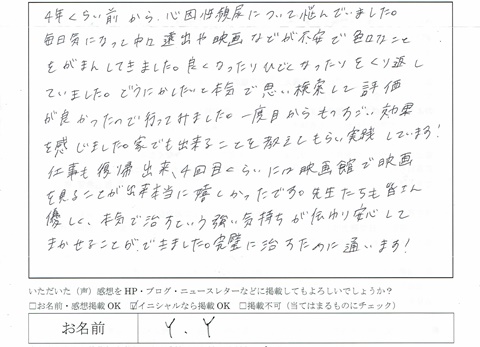 4年くらい前から、心因性頻尿について悩んでいました。
毎日気になって中々遠出や映画などが不安で色々なこと
をがまんしてきました。良くなったりひどくなったりをくり返し
ていました。どうにかしたいと本気で思い検索して評価
が良かったので行ってみました。一度目からものすごい効果
を感じました。家でも出来ることを教えてもらい実践しています!
仕事も復帰出来、4回目くらいには映画館で映画
を見ることが出来本当に嬉しかったです。先生たちも皆さん
優しく、本気で治すという強い気持ちが伝わり安心して
まかせることができました。完璧に治すために通います!
いただいた（声）感想をHP・ブログ・ニュースレターなどに掲載してもよろしいでしょうか？
□お名前・感想掲載OK ☑イニシャルなら掲載OK □掲載不可（当てはまるものにチェック）
お名前 Y.Y